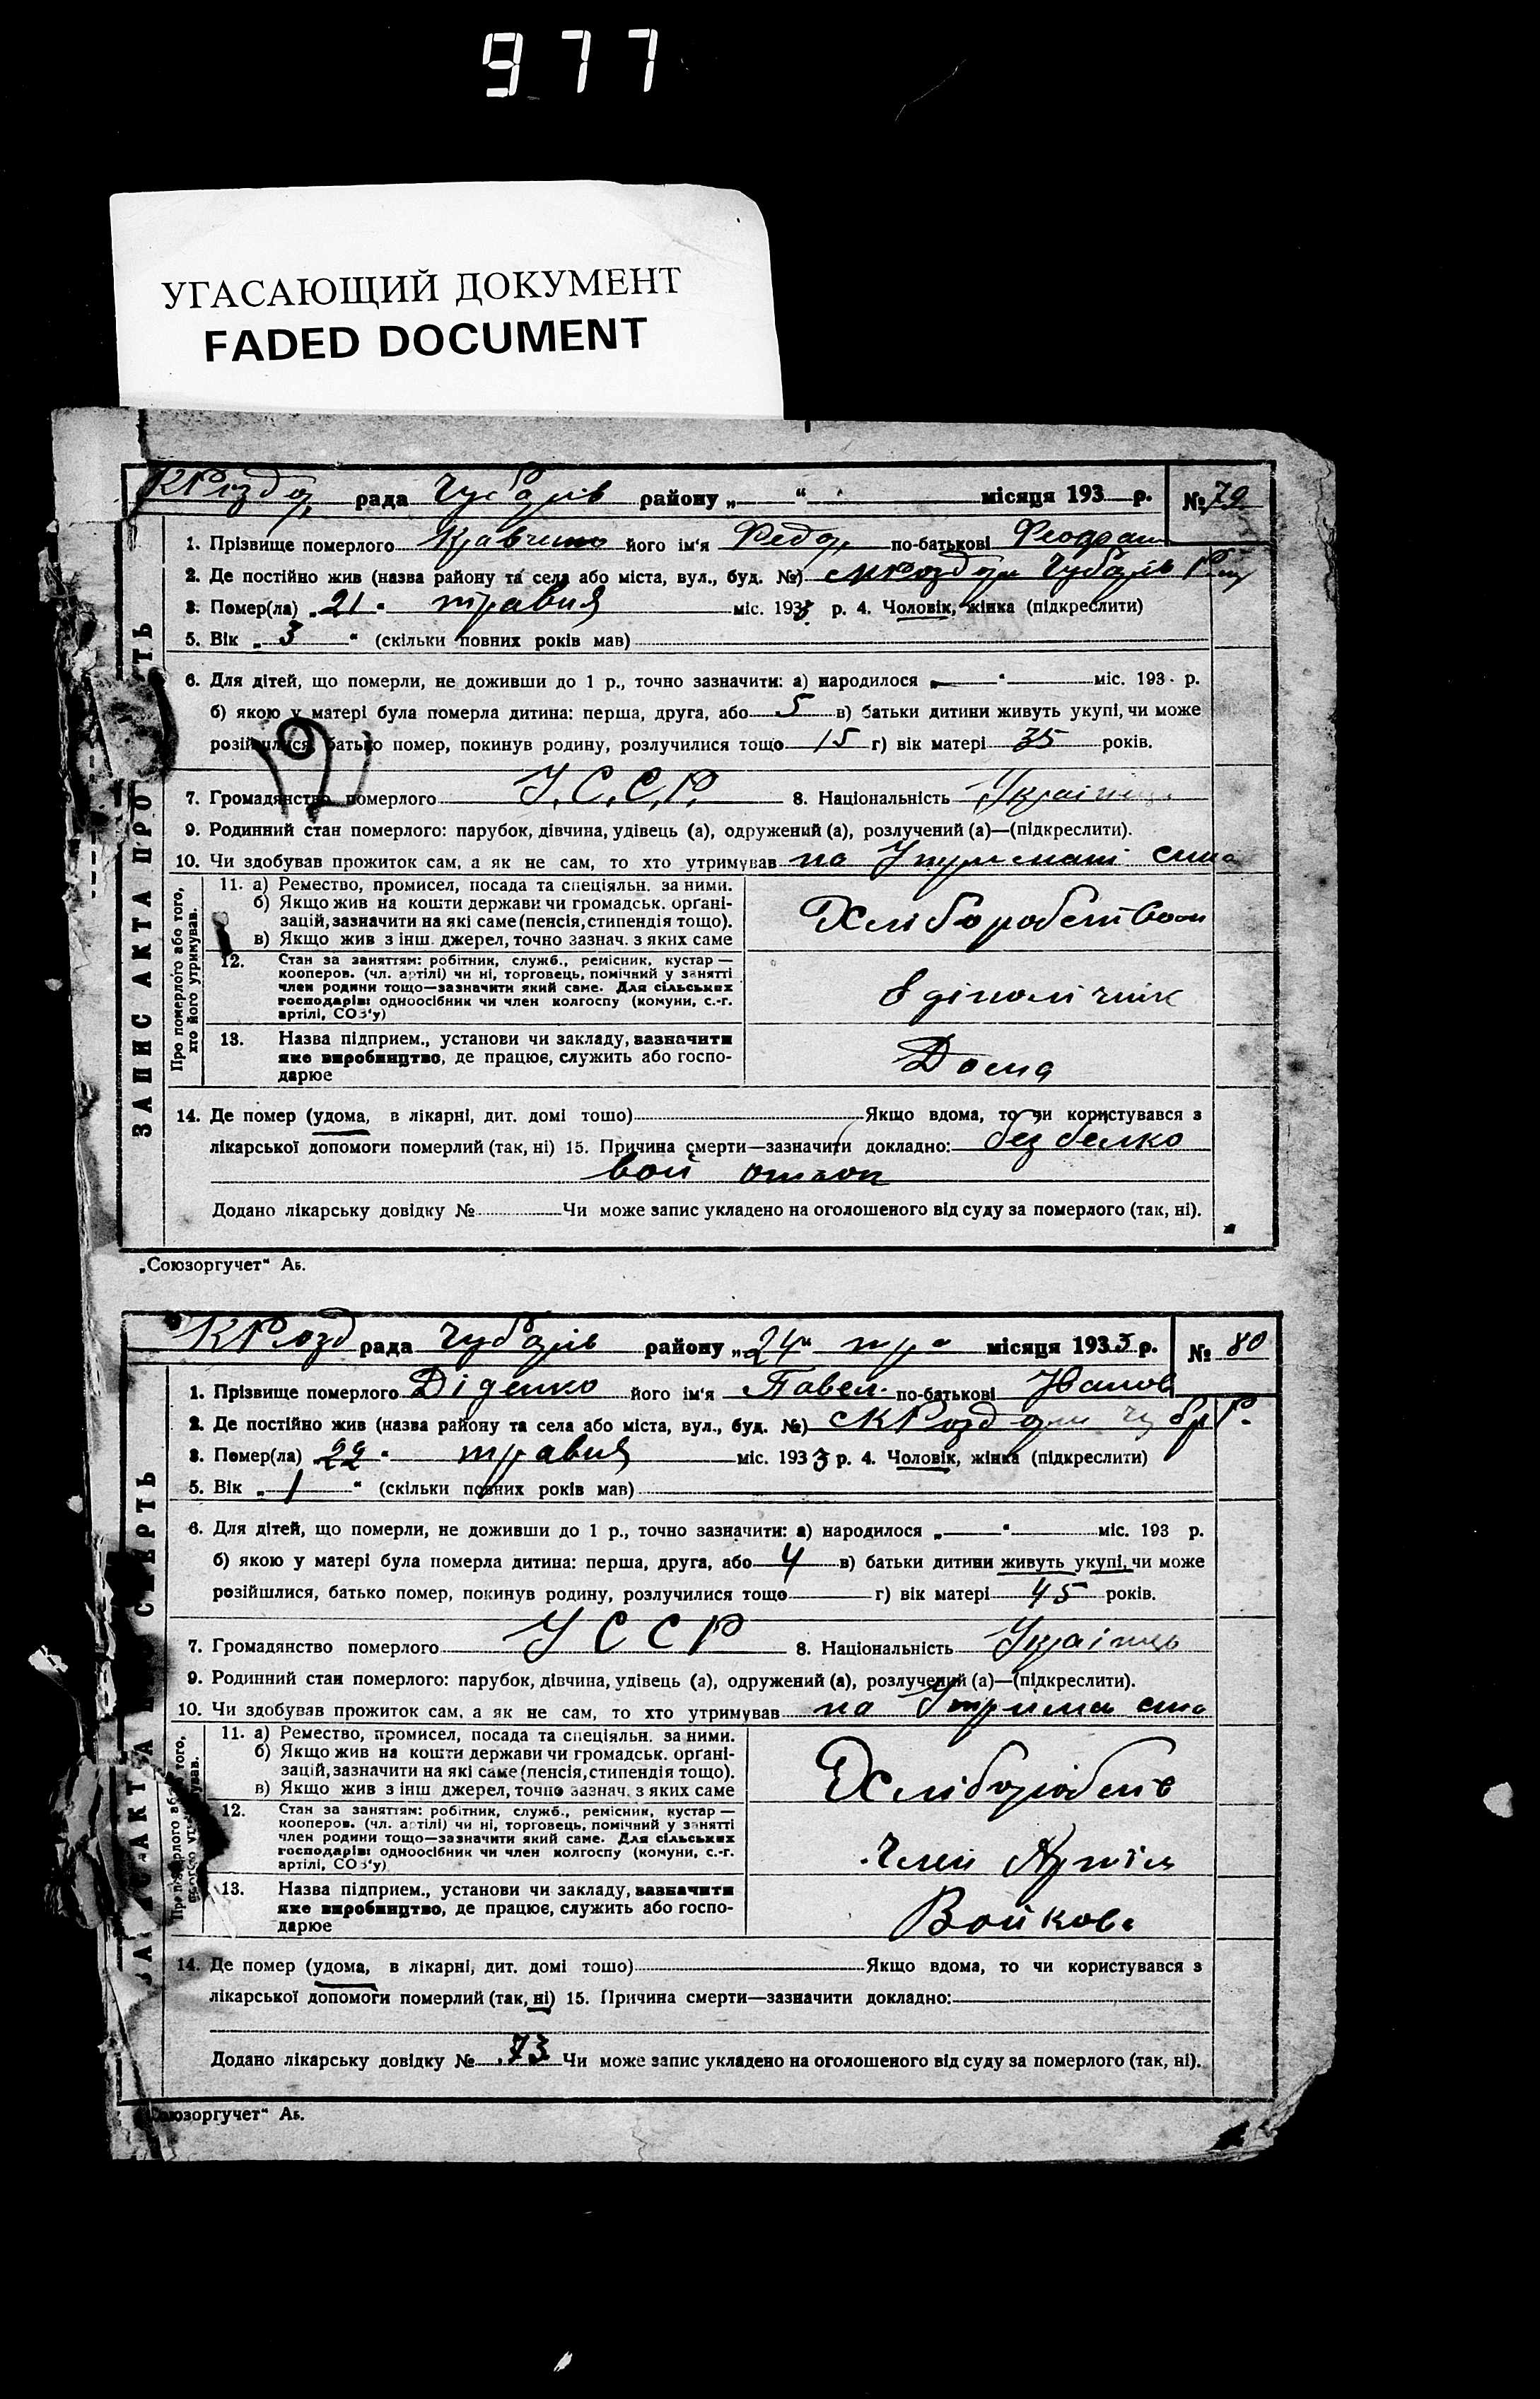 977
УГАСАЮЩИЙ ДОКУМЕНТ
FADED DOCUMENT
КРозд рада Чубарів району „ “ місяця 193 р. № 79
1. Прізвище померлого його ім'я Федор по-батькові Феофан
2. Де постійно жив (назва району та села або міста, вул., буд. №) с КРоздори Чубарів Р
3. Помер(ла) „ 21 “ травня міс. 1933 р. 4. Чоловік, жінка (підкреслити)
5. Вік „ 3 “ (скільки повних років мав)
6. Для дітей, що померли, не доживши до 1 р., точно зазначити: а) народилося „ “ міс. 193 р.
б) якою у матері була померла дитина: перша, друга, або 5 в) батьки дитини живуть укупі, чи може
розійшлися, батько помер, покинув родину, розлучилися тощо 15 г) вік матері 35 років.
7. Громадянство померлого У.С.С.Р. 8. Національність Українець
9. Родинний стан померлого: парубок, дівчина, удівець (а), одружений (а), розлучений (а)—(підкреслити).
10. Чи здобував прожиток сам, а як не сам, то хто утримував на
ЗАПИС АКТА ПРО
Про померлого або того, хто його утримував.
11. а) Ремество, промисел, посада та спеціяльн. за ними.
б) Якщо жив на кошти держави чи громадськ. органі-
зацій, зазначити на які саме (пенсія, стипендія тощо).
в) Якщо жив з інш. джерел, точно зазнач. з яких саме
Хліборобством
12. Стан за заняттям: робітник, служб., ремісник, кустар —
кооперов. (чл. артілі) чи ні, торговець, помічний у занятті
член родини тощо—зазначити який саме. Для сільських
господарів: одноосібник чи член колгоспу (комуни, с.-г.
артілі, СОЗ'у)
13. Назва підприєм., установи чи закладу, зазначити
яке виробництво, де працює, служить або госпо-
дарює
Дома
14. Де помер (удома, в лікарні, дит. домі тошо) Якщо вдома, то чи користувався з
лікарської допомоги померлий (так, ні) 15. Причина смерти—зазначити докладно: безбелко
вой
Додано лікарську довідку № Чи може запис укладено на оголошеного від суду за померлого (так, ні).
„Союзоргучет“ Аь.
КРозд рада Чубарів району „24“ тра місяця 1933 р. № 80
1. Прізвище померлого Діденко його ім'я Павел по-батькові Іванов
2. Де постійно жив (назва району та села або міста, вул., буд. №) с КРоздори Чубр Р.
3. Помер(ла) „ 22 “ травня міс. 1933 р. 4. Чоловік, жінка (підкреслити)
5. Вік „ 1 “ (скільки повних років мав)
6. Для дітей, що померли, не доживши до 1 р., точно зазначити: а) народилося „ “ міс. 193 р.
б) якою у матері була померла дитина: перша, друга, або 4 в) батьки дитини живуть укупі, чи може
розійшлися, батько помер, покинув родину, розлучилися тощо г) вік матері 45 років.
7. Громадянство померлого УССР 8. Національність Українець
9. Родинний стан померлого: парубок, дівчина, удівець (а), одружений (а), розлучений (а)—(підкреслити).
10. Чи здобував прожиток сам, а як не сам, то хто утримував на
11. а) Ремество, промисел, посада та спеціяльн. за ними.
б) Якщо жив на кошти держави чи громадськ. органі-
зацій, зазначити на які саме (пенсія, стипендія тощо).
в) Якщо жив з інш джерел, точно зазнач. з яких саме
12. Стан за заняттям: робітник, служб., ремісник, кустар —
кооперов. (чл. артілі) чи ні, торговець, помічний у занятті
член родини тощо—зазначити який саме. Для сільських
господарів: одноосібник чи член колгоспу (комуни, с.-г.
артілі, СОЗ'у)
Член Артілі
13. Назва підприєм., установи чи закладу, зазначити
яке виробництво, де працює, служить або госпо-
дарює
Войкова
14. Де помер (удома, в лікарні, дит. домі тошо) Якщо вдома, то чи користувався з
лікарської допомоги померлий (так, ні) 15. Причина смерти—зазначити докладно:
Додано лікарську довідку № 73 Чи може запис укладено на оголошеного від суду за померлого (так, ні).
оюзоргучет“ Аь.